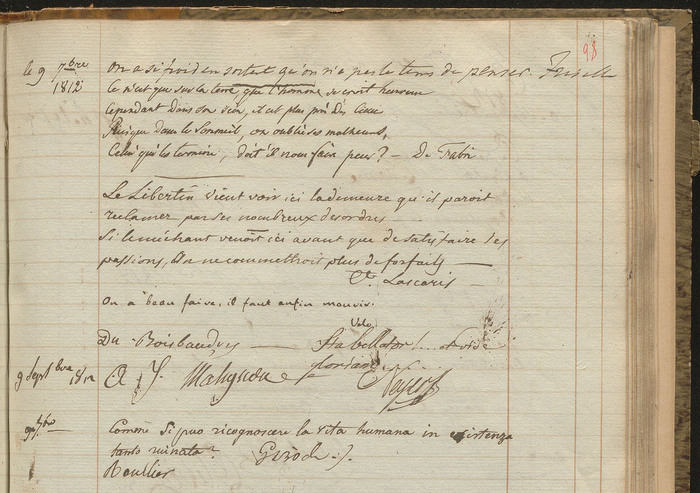 98
le 9 7bre
1812
On a si froid en sortant qu'on n'a pas le tems de penser.
Ce n'est que sur la terre que l'homme se croit heureux
Cependant dans son sein, il est plus près des Cieux
Puisque dans le Sommeil, on oublie ses malheurs,
Celui qui les termine, doit il nous faire peur? — De
Le Libertin vient voir ici la demeure qu'il paroit
reclamer par ses nombreux desordres
Si le méchant venoit ici avant que de satisfaire ses
passions, On ne commettroit plus de forfaits —
Cte Lascaris —
On a beau faire, il faut enfin mourir.
Du Boisbaudry —
9 Septbre 1812
9 7bre
Comme si puo ricognoscere la vita humana in esistenza
tanto ruinata?
Roullier